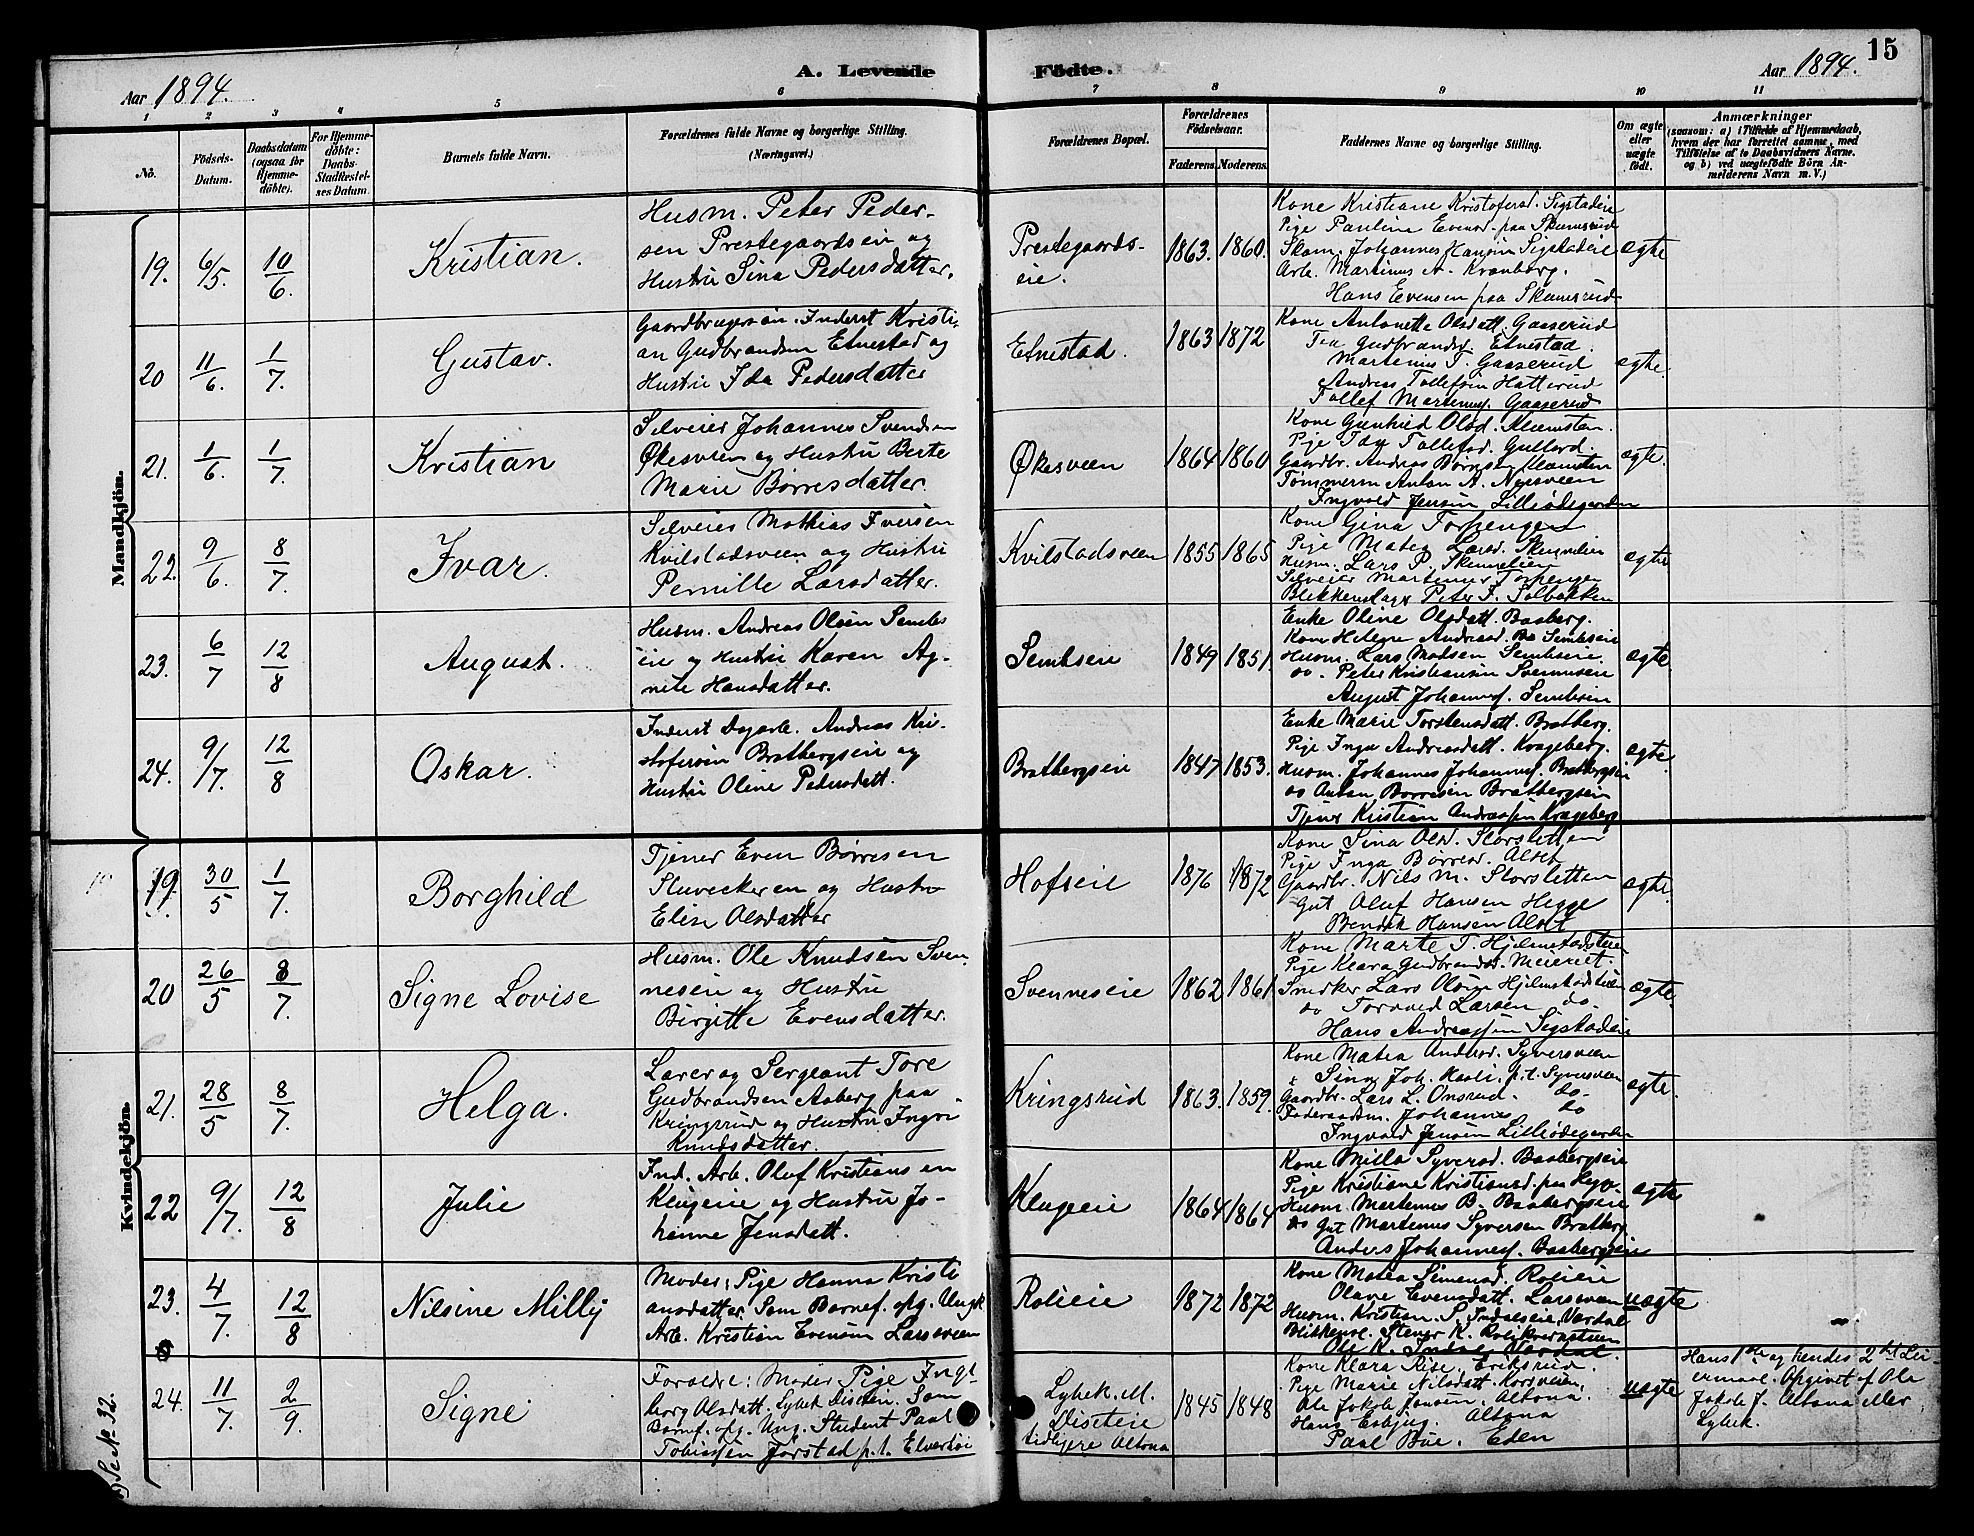 Aar 1894.
A. Levende
Födte.
Aar 1894.
15
1 2 3 4 5 6 7 8 9 10 11
No.
Födsels-
Datum.
Daabsdatum
(ogsaa for
Hjemme-
döbte).
For Hjemme-
döbte:
Daabs-
Stadfæstel-
ses Datum.
Barnets fulde Navn.
Forældrenes fulde Navne og borgerlige Stilling.
(Næringsvei.)
Forældrenes Bopæl.
Forældrenes
Födselsaar.
Faderens. Moderens.
Faddernes Navne og borgerlige Stilling.
Om ægte
eller
uægte
födt.
Anmærkninger
(saasom: a) i Tilfælde af Hjemmedaab,
hvem der har forrettet samme, med
Tilföielse af to Daabsvidners Navne,
og b) ved uægtefödte Börn An-
melderens Navn m. V.)
Mandkjön.
19. 6/5 10/6. Kristian.
Husm. Peter Peder-
sen Prestegaardseie og
Hustru Sina Pedersdatter.
Prestegaards-
eie.
1863. 1860.
Kone Kristiane Kristofersd. Sigstadeie
Pige Pauline Evensd. paa Skumsrud
Skom. Johannes Hansen Sigstadeie
Arb. Martinus A. Kranborg.
Hans Evensen paa Skumsrud
ægte
20 11/6. 1/7. Gustav.
Gaardbrugersøn. Inderst Kristi-
an Gudbrandsen Etnestad og
Hustru Ida Pedersdatter
Etnestad.
1863 1872
Kone Antonette Olsdatt. Gaaserud
Tea Gudbrandsd. Etnestad.
Martenius T. Gaaserud
Andreas Tollefsen Hatterud
Tollef Martenius. Gaaserud
ægte.
21. 1/6. 1/7. Kristian
Selveier Johannes Svendsen
Økesveen og Hustru Berte
Marie Børresdatter.
Økesveen
1864 1860
Kone Gunhild Olsd. Klemsten
Pige Ida Tollefsd. Gullord.
Gaardbr. Andreas Børresen
Tømmerm Anton A. Nyesveen
Ingvald Jensen Lilleødegaarden
ægte.
22. 9/6. 8/7. Ivar.
Selveier Mathias Iversen
Kvilstadsveen og Hustru
Pernille Larsdatter.
Kvilstadsveen
1855 1865
Kone Gina Torpengen
Pige Matea Larsd. Skumelien
Husm. Lars P. Skumelien
Selveier Martenius Torpengen
Blikkenslager Peter F. Solbakken
ægte
23. 6/7 12/8 August.
Husm. Andreas Olsen Sembs
eie og Hustru Karen Ag-
nete Hansdatter.
Sembseie
1849 1851.
Enke Oline Olsdatt. Baaberg.
Kone Helene Andreasd. Sembseie
Husm. Lars Madsen Sembseie.
do. Peter Kristiansen Svennseie
August Johannes. Sembseie
ægte
24. 9/7. 12/8 Oskar.
Inderst Dagarb. Andreas Kri-
stofersen Bratbergseie og
Hustru Oline Pedersdatt.
Bratbergseie
1847 1853.
Enke Marie Torstensdatt. Bratberg.
Pige Inga Andreasdatt. Krageberg.
Husm. Johannes Johannes. Bratbergseie
do Anton Børresen Bratbergseie
Tjener Kristian Andreassen Krageberg
ægte.
Kvindekjön.
19 30/5 1/7. Borghild
Tjener Even Børresen
Stuveckeren og Hustru
Elise Olsdatter
Hofseie
1876 1872
Kone Sina Olsd. Storsletten
Pige Inga Børresd. Alset
Gaardbr. Nils M. Storsletten
Gut Oluf Hansen Hegge
Bendik Hansen Alset
ægte.
20 26/5 8/7. Signe Lovise
Husm. Ole Knudsen Sven
neseie og Hustru
Birgitte Evensdatter.
Svenneseie
1862 1861
Kone Marte T. Hjelmstadstuen
Pige Klara Gudbrandsd. Meieriet.
Snedker Lars Olsen Hjelmstadstuen
do Torvald Larsen do.
Hans Andreassen Sigstadeie
ægte.
21. 28/5 8/7. Helga.
Lærer og Sergeant Tore
Gudbrandsen Aaberg paa
Kringsrud og Hustru Ingri
Knudsdatter.
Kringsrud
1863. 1859.
Kone Matea Andersd. Syversveen
Sina Joh. Kaali. p.t. Syversveen
Gaardbr. Lars L. Onsrud. do.
Føderaadsm. Johannes do
Ingvald Jensen Lilleødegaarden
ægte.
22 9/7. 12/8 Julie
Ind. Arb. Oluf Kristiansen
Klugeie og Hustru Jo-
hanne Jensdatt.
Klugeie
1864 1864
Kone Milla Syversd. Baabergseie
Pige Kristiane Kristiansd. paa
Husm. Martenus B. Baabergseie
do Gut Martenus Syversen Bratberg
Anders Johannes. Baabergseie
ægte
23. 4/7. 12/8 Nilsine Milly
Moder: Pige Hanna Kristi
ansdatter. Som Barnef. opg. Ungk
Arb. Kristian Evensen Larsveen
Rolieie
1872 1872
Kone Matea Simensd. Rolieie
Olave Evensdatt. Larsveen
Husm. Kristian S. Indalseie, Vardal
Blikkensl. Stener K. Rolikvernstuen
Ole K. Vardal.
uægte
24. 11/7. 2/9. Signe
Foreldre: Moder Pige Inge-
borg Olsdatt. Lybek Diseteie. Som
Barnef. opg. Ung. Student Paal
Tobiassen Jorstad p.t. Elverhøi
Lybek. M.
Diseteie
tidligere Altona
1845 1848
Kone Klara Rise, Eriksrud.
Pige Marie Nilsdatt. Korsveien,
Ole Jakob Jensen. Altona
Hans Esbjug. Altona
Paal Bue. Eden
uægte
Hans 1ste og hendes 2det Lei-
ermaal. Opgivet af Ole
Jakob J. Altona eller
Lybek.
Se No. 32.